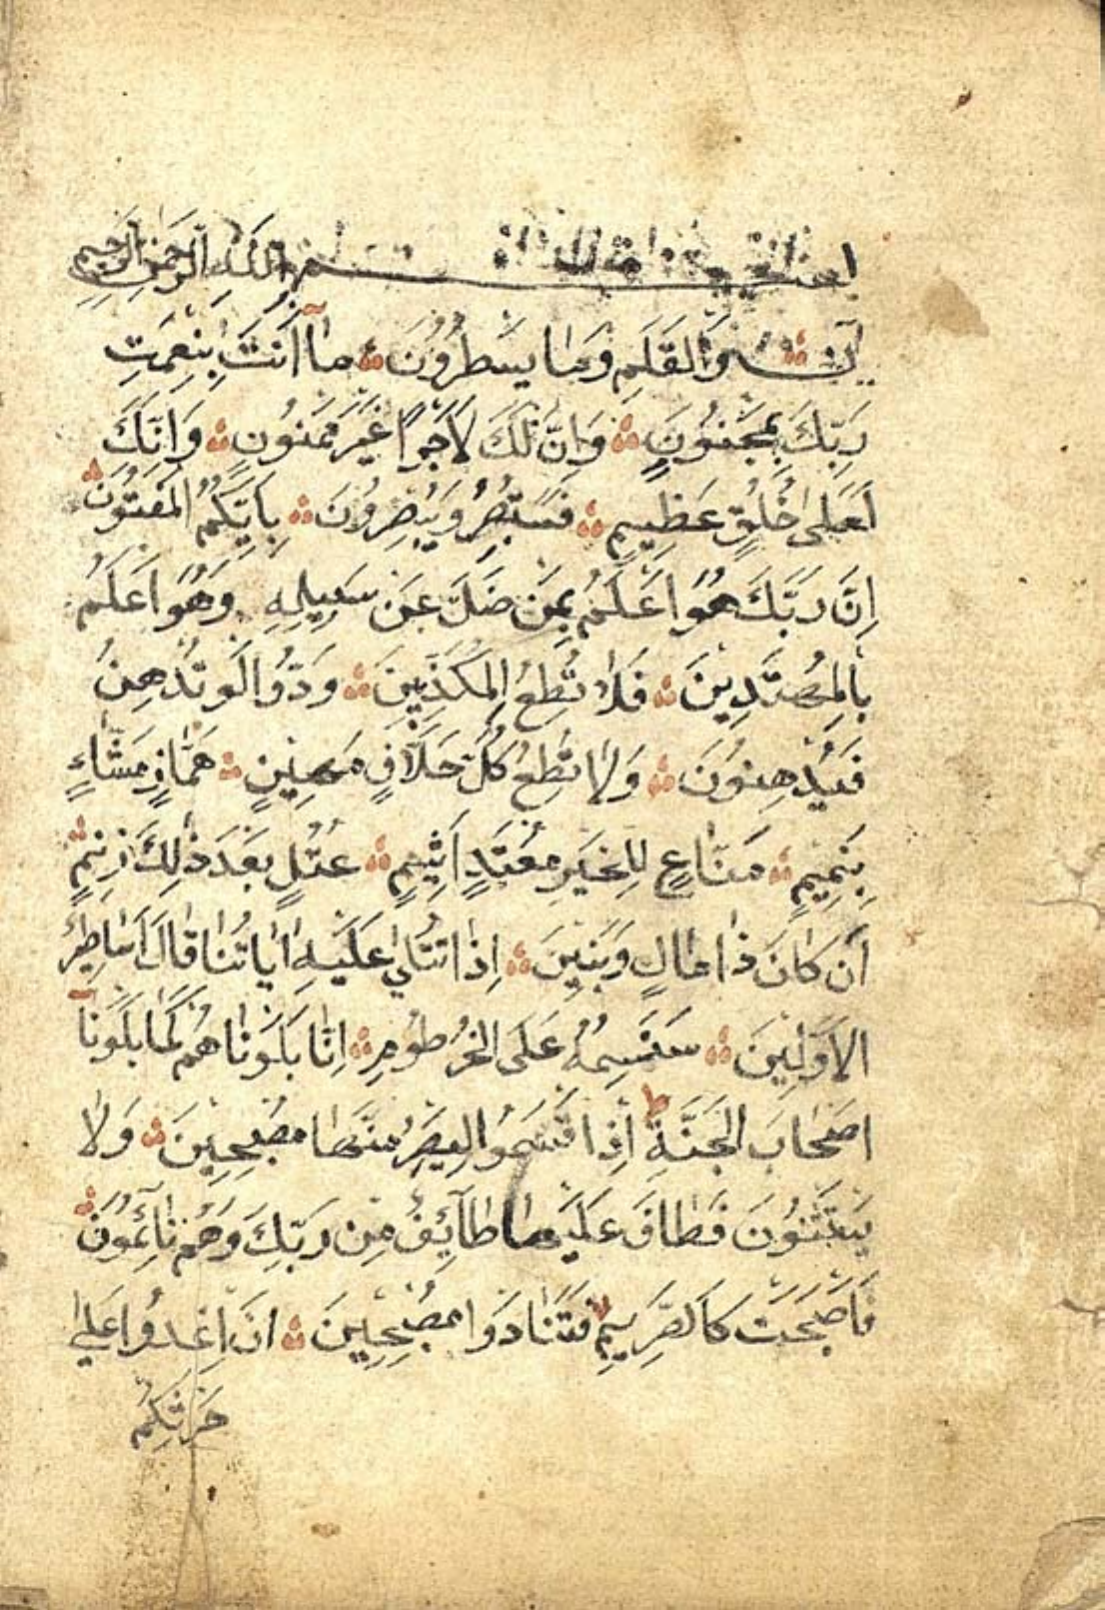 بسم الله الرحمن الرحيم
ن وَالقَلَمِ وَمَا يَسطُرُونَ مَآ اَنتَ بِنِعمَتِ
رَبِّكَ بِمَجنُونٍ وَاِنَّ لَكَ لَاَجرًا غَيرَ مَمنُونٍ وَاِنَّكَ
لَعَلى خُلُقٍ عَظِيمٍ فَسَتُبصِرُ وَيُبصِرُونَ بِاَيِّكُمُ المَفتُونُ
اِنَّ رَبَّكَ هُوَ اَعلَمُ بِمَن ضَلَّ عَن سَبِيلِهِ وَهُوَ اَعلَمُ
بِالمُهتَدِينَ فَلَا تُطِعِ المُكَذِّبِينَ وَدُّوا لَو تُدهِنُ
فَيُدهِنُونَ وَلَا تُطِع كُلَّ حَلَّافٍ مَهِينٍ هَمَّازٍ مَشَّاءٍ
بِنَمِيمٍ مَنَّاعٍ لِلخَيرِ مُعتَدٍ اَثِيمٍ عُتُلٍّ بَعدَ ذٰلِكَ زَنِيمٍ
اَن كَانَ ذَا مَالٍ وَبَنِينَ اِذَا تُتلى عَلَيهِ اٰيَاتُنَا قَالَ اَسَاطِيرُ
الاَوَّلِينَ سَنَسِمُهُ عَلَى الخُرطُومِ اِنَّا بَلَونَاهُم كَمَا بَلَونَآ
اَصحَابَ الجَنَّةِ اِذ اَقسَمُوا لَيَصرِمُنَّهَا مُصبِحِينَ وَلَا
يَستَثنُونَ فَطَافَ عَلَيهَا طَآئِفٌ مِن رَبِّكَ وَهُم نَائِمُونَ
فَاَصبَحَت كَالصَّرِيمِ فَتَنَادَوا مُصبِحِينَ اَنِ اغدُوا عَلى
حَرثِكُم